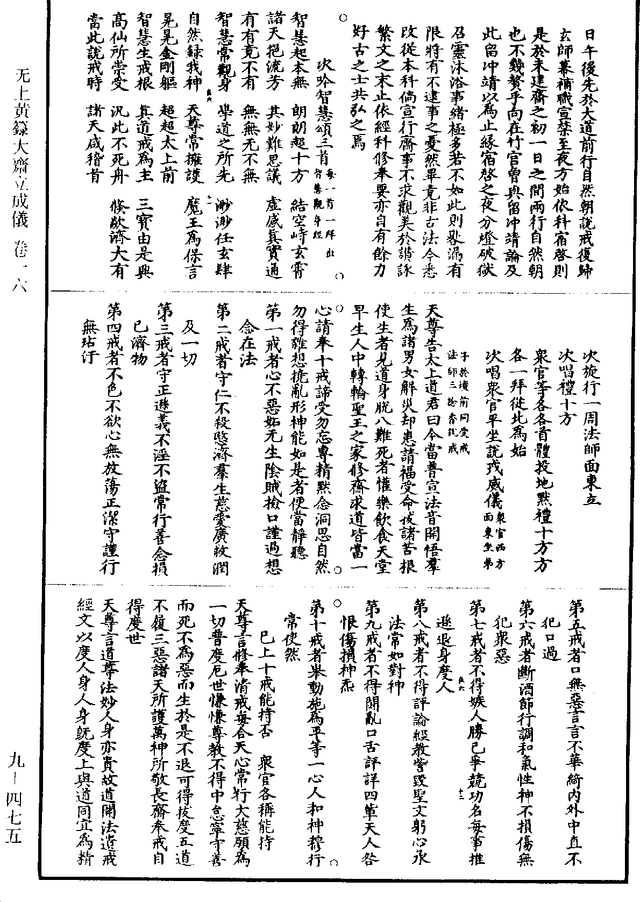 日午後先於大道前行自然朝說戒復歸
玄師幕補職宣禁至夜方始依科宿啓則
是於未建齋之初一日之間兩行自然朝
也不幾贅乎向在竹宮曾與留冲靖論及
此留冲靖以為止緣宿啓之夜分燈破獄
召靈沐浴事緒極多若不如此則晷漏有
限將有不逮事之憂然畢竟非古法今悉
改從本科倘宣行齋事不求觀美於諸詠
繁文之末止依經科修奉要亦自有餘力
好古之士共弘之焉
次吟智慧頌三首每一首一拜出智慧觀身經
智慧起本無 朗朗超十方 結空峙玄霄
諸天挹流芳 其妙難思議 虛感真實通
有有竟不有 無無無不無
智慧常觀身 學道之所先 渺渺任玄肆
自然録我神 天尊常擁護 魔王為保言
晃晃金剛軀 超超太上前
智慧生戒根 真道戒為主 三寶由是興
高仙所崇受 汎此不死舟 倏欻濟大有
當此說戒時 諸天咸稽首
无上黃籙大齋立成儀 卷一六
次旋行一周法師面東立
次唱禮十方
衆官等各各首體投地默禮十方方
各一拜從北為始
次唱衆官平坐說戒威儀衆官西方面東坐弟
子於墳前同受戒法師三捻香說戒
天尊告太上道君曰今當普宣法音開悟羣
生為諸男女解災却患請福受命拔諸苦根
使生者見道身脫八難死者懽樂飲食天堂
早生人中轉輪聖王之家修齋求道皆當一
心請奉十戒諦受勿忘專精默念洞思自然
勿得雜想撓亂形神能如是者便當靜聽
第一戒者心不惡妬无生陰賊檢口謹過想
念在法
第二戒者守仁不殺愍濟羣生慈愛廣救潤
及一切
第三戒者守正遜義不淫不盜常行善念損
已濟物
第四戒者不色不欲心無放蕩正潔守護行
無玷汙
第五戒者口無惡言言不華綺内外中直不
犯口過
第六戒者斷酒節行調和氣性神不損傷無
犯衆惡
第七戒者不得嫉人勝己爭競功名每事推
遜退身度人
第八戒者不得評論經教訾毀聖文躬心承
法常如對神
第九戒者不得鬭亂口舌評詳四輩天人咎
恨傷損神炁
第十戒者舉動施為平等一心人和神穆行
常使然
已上十戒能持否 衆官各稱能持
天尊言修奉清戒每合天心常行大慈願為
一切普度厄世慊慊尊教不得中怠寧守善
而死不為惡而生於是不退可得拔度五道
不履三惡諸天所護萬神所敬長齋奉戒自
得度世
天尊言道尊法妙人身亦貴故道開法遣戒
經文以度人身人身既度上與道同宜為精
九－四七五